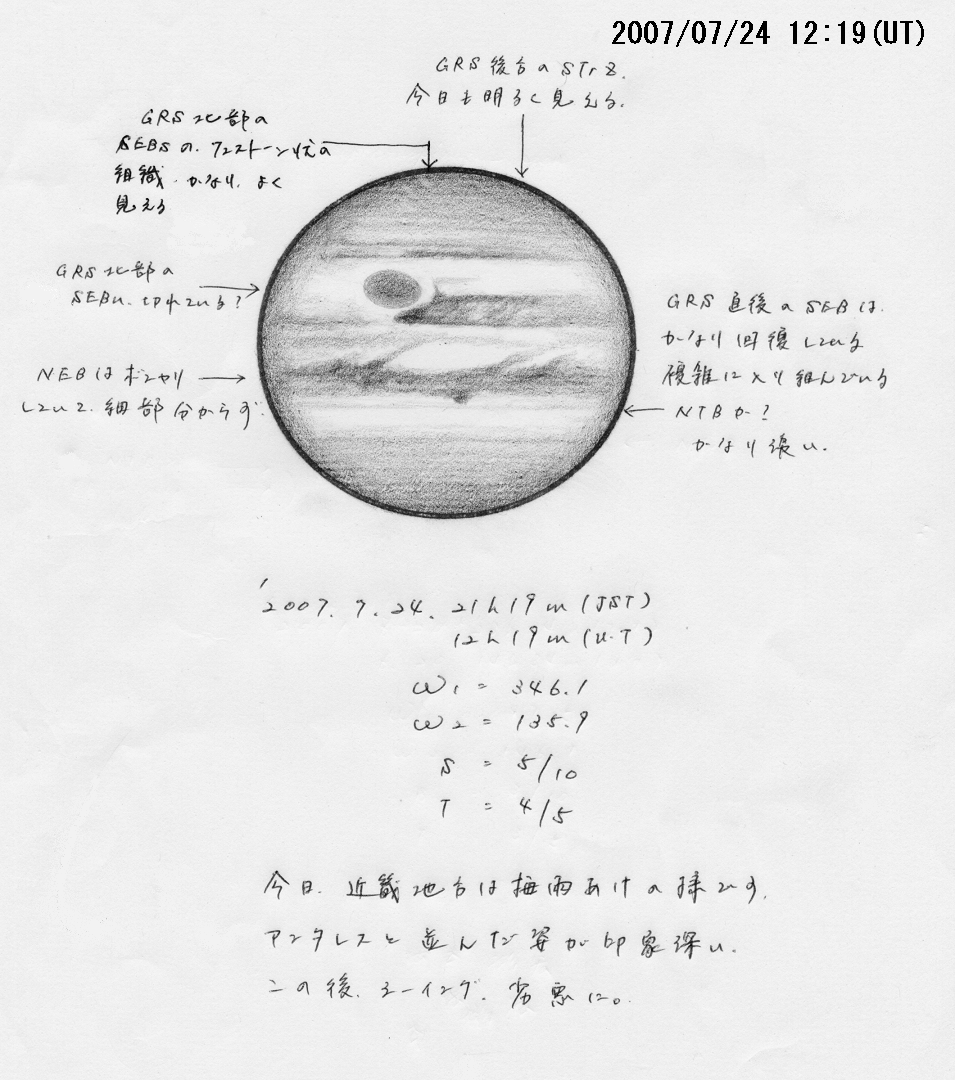 2007/07/24 12:19(UT)
GRS後方のSTrZ.
今日も明るく見える.
GRS北部の
SEBsの.フェストーン状の
組織.かなり.よく
見える
GRS北部の
SEBn.切れている?
NEBはボンヤリ
していて.細部分からず.
GRS直後のSEBは.
かなり回復している
複雑に入り組んでいる
NTBか?
かなり濃い.
'2007.7.24.21h19m(JST)
12h19m(U.T)
ω1=346.1
ω2=135.9
S=5/10
T=4/5
今日.近畿地方は梅雨あけの様です.
アンタレスと並んだ姿が印象深い.
この後.シーイング.劣悪に。